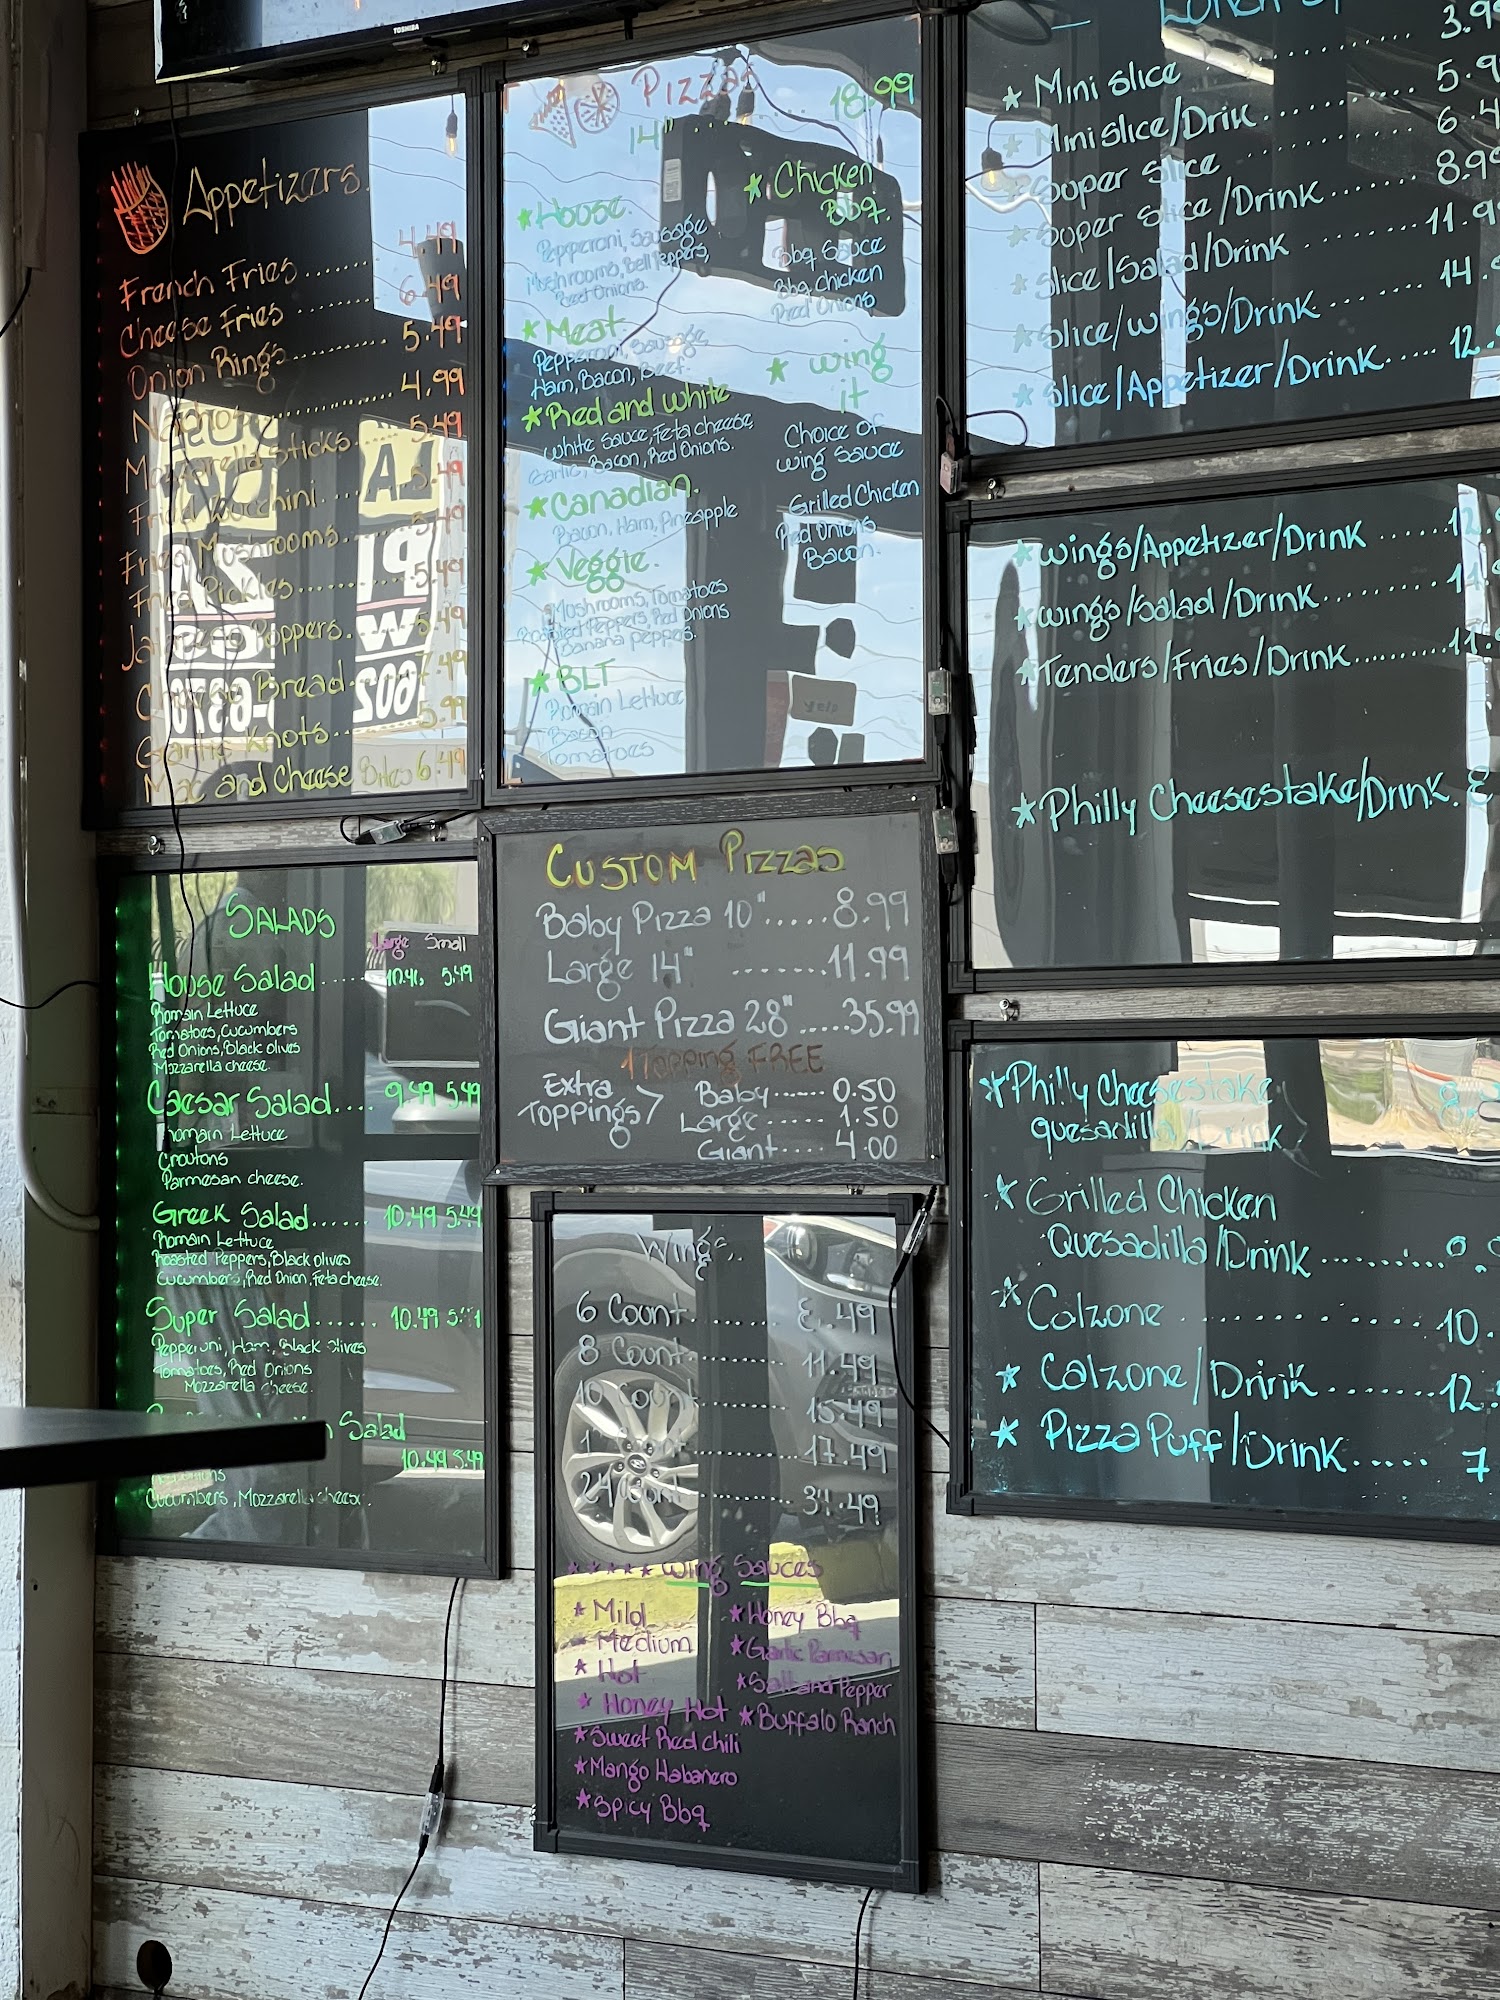 TOSHIBA
Appetizers
French Fries ........ 4.49
Cheese Fries ........ 6.49
Onion Rings .......... 5.49
Nachos .............. 4.99
Mozzarella sticks.... 5.49
Fried Zucchini.... 5.49
Fried Mushrooms.... 5.49
Fried Pickles....... 5.49
Jalapeno Poppers.... 5.49
Bread.... 7.49
Garlic Knots.... 5.99
Mac and Cheese Bites 6.49
Pizzas
14" ........ 18.99
★House.
Pepperoni, Sausage
Mushrooms, Bell Peppers,
Red Onions.
★Meat
Pepperoni, Sausage,
Ham, Bacon, Beef.
★Red and White
White Sauce, Feta cheese,
Garlic, Bacon, Red Onions.
★Canadian.
Bacon, Ham, Pineapple
★Veggie.
Mushrooms, Tomatoes
Roasted Peppers, Red Onions
Banana peppers.
★BLT
Romain Lettuce
Bacon
Tomatoes
★Chicken
Bbq.
Bbq Sauce
Bbq chicken
Red Onions
★ Wing
it
Choice of
wing Sauce
Grilled Chicken
Red Onions
Bacon.
yelp
3.9
★ Mini slice
★ Mini slice/Drink 5.9
★ Super Slice 6.4
★ Super Slice/Drink 8.9
★ Slice/Salad/Drink 11.9
★ Slice/wings/Drink 14.
★ Slice/Appetizer/Drink..... 12.
★Wings/Appetizer/Drink ...... 12.
★Wings/Salad/Drink........ 14.
★Tenders/Fries/Drink.......... 11.
★Philly Cheesestake/Drink.
★Philly Cheesestake
quesadilla/Drink
★Grilled Chicken
Quesadilla/Drink
★Calzone .......... 10.
★ Calzone/Drink ....... 12.
★ Pizza Puff/Drink..... 7
Custom Pizzas
Baby Pizza 10"......8.99
Large 14" .......11.99
Giant Pizza 28".....35.99
1 Topping FREE
Extra
Toppings >
Baby...... 0.50
Large...... 1.50
Giant.... 4.00
SALADS
Large Small
House Salad..... 5.49
Romain Lettuce
Tomatoes, Cucumbers
Red Onions, Black olives
Mozzarella cheese.
Caesar Salad.... 9.49 5.49
Romain Lettuce
Croutons
Parmesan cheese.
Greek Salad...... 10.49 5.49
Romain Lettuce
Roasted Peppers, Black olives
Cucumbers, Red Onion, Feta cheese.
Super Salad ...... 10.49
Pepperoni, Ham, Black olives
Tomatoes, Red Onions
Mozzarella cheese.
Salad
10.49 5.49
Cucumbers, Mozzarella cheese.
Wings.
6 Count........ 8.49
8 Count........ 11.49
10 Count....... 15.49
17.49
24 Count....... 34.49
★★★★★ Wing Sauces
★Mild
★Medium
★Hot
★Honey Hot
★Sweet Red chili
★Mango Habanero
★Spicy Bbq
★Honey Bbq
★Garlic Parmesan
★Salt and Pepper
★Buffalo Ranch